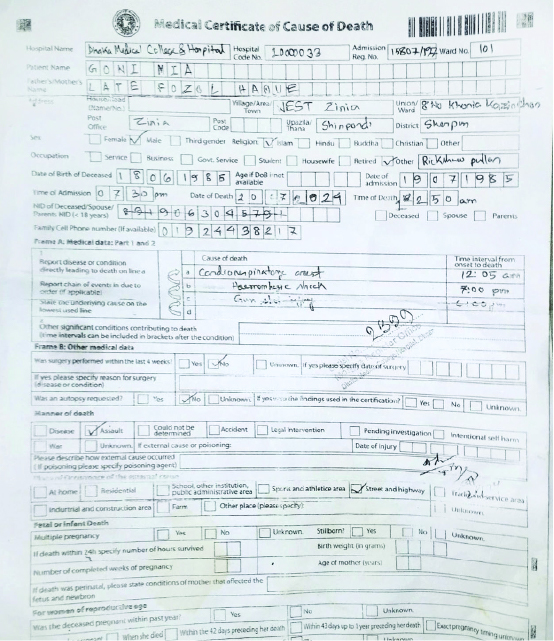 Medical Certificate of Cause of Death
Hospital Name Dhaka Medical College & Hospital Hospital Code No. 10000033 Admission Reg. No. Ward No. 101
Patient Name GONI MIA
Father's/Mother's Name LATE FOZOL HAQUE
Address House/Road (Name/No.) Village/Area/Town WEST Zinia Union/Ward
Post Office Zinia Post Code Upazila/Thana District
Sex Female Male Third gender Religion Islam Hindu Buddha Christian Other
Occupation Service Business Govt. Service Student Housewife Retired Other
Date of Birth of Deceased 18 06 1985 Age if DoB not available Date of admission 19071985
Time of Admission 0730 pm Date of Death Time of Death 1250 am
NID of Deceased/Spouse/Parents NID (< 18 years) Deceased Spouse Parents
Family Cell Phone number (if available) 01924438217
Frame A: Medical data: Part 1 and 2
1 Cause of death Time interval from onset to death
Report disease or condition directly leading to death on line a a Cardiorespiratory arrest 12:05 am
Report chain of events in due to order (if applicable) b Haemorrhagic shock 7:00 pm
State the underlying cause on the lowest used line c Gun shot injury
d
2399
Other significant conditions contributing to death (time intervals can be included in brackets after the condition)
Frame B: Other medical data
Was surgery performed within the last 4 weeks? Yes No Unknown. If yes please specify date of surgery
If yes please specify reason for surgery (disease or condition)
Was an autopsy requested? Yes No Unknown If yes were the findings used in the certification? Yes No Unknown
Manner of death
Disease Assault Could not be determined Accident Legal intervention Pending investigation Intentional self harm
War Unknown. If external cause or poisoning: Date of Injury
Please describe how external cause occurred (If poisoning please specify poisoning agent)
At home Residential School, other institution, public administrative area Sports and athletics area Street and highway Trade and service area
Industrial and construction area Farm Other place (please specify) Unknown
Fetal or infant Death
Multiple pregnancy Yes No Unknown. Stillborn? Yes No Unknown.
If death within 24h specify number of hours survived Birth weight (in grams)
Number of completed weeks of pregnancy Age of mother (years)
If death was perinatal, please state conditions of mother that affected the fetus and newborn
For women of reproductive age
Was the deceased pregnant within past year? Yes No Unknown.
When she died Within the 42 days preceding her death Within 43 days up to 1 year preceding her death Exact pregnancy timing unknown